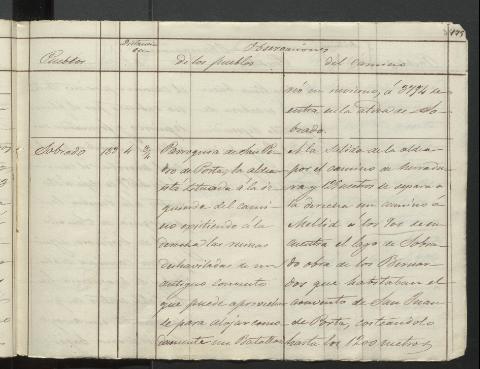 Observaciones
Pueblos
de los pueblos
del camino
en se
entra en la aldea de So-
brado.
Sobrado 4 3/4
Parroquia de San Pe-
dro de Porta, la aldea
está situada á la iz-
quierda del cami-
no existiendo á la
derecha las ruinas
deshavitadas de un
antiguo convento
que puede aprovechar
se para alojar como
damente un Batallon
A la Salida de la aldea
por el camino de herradu-
ra y se separa a
la derecha un camino a
Mellid á los 900 se en-
cuentra el lago de Sobra-
do obra de los Bernar-
dos que habitaban el
convento de San Juan
de Porta, costeándolo
hasta los 1200 metros